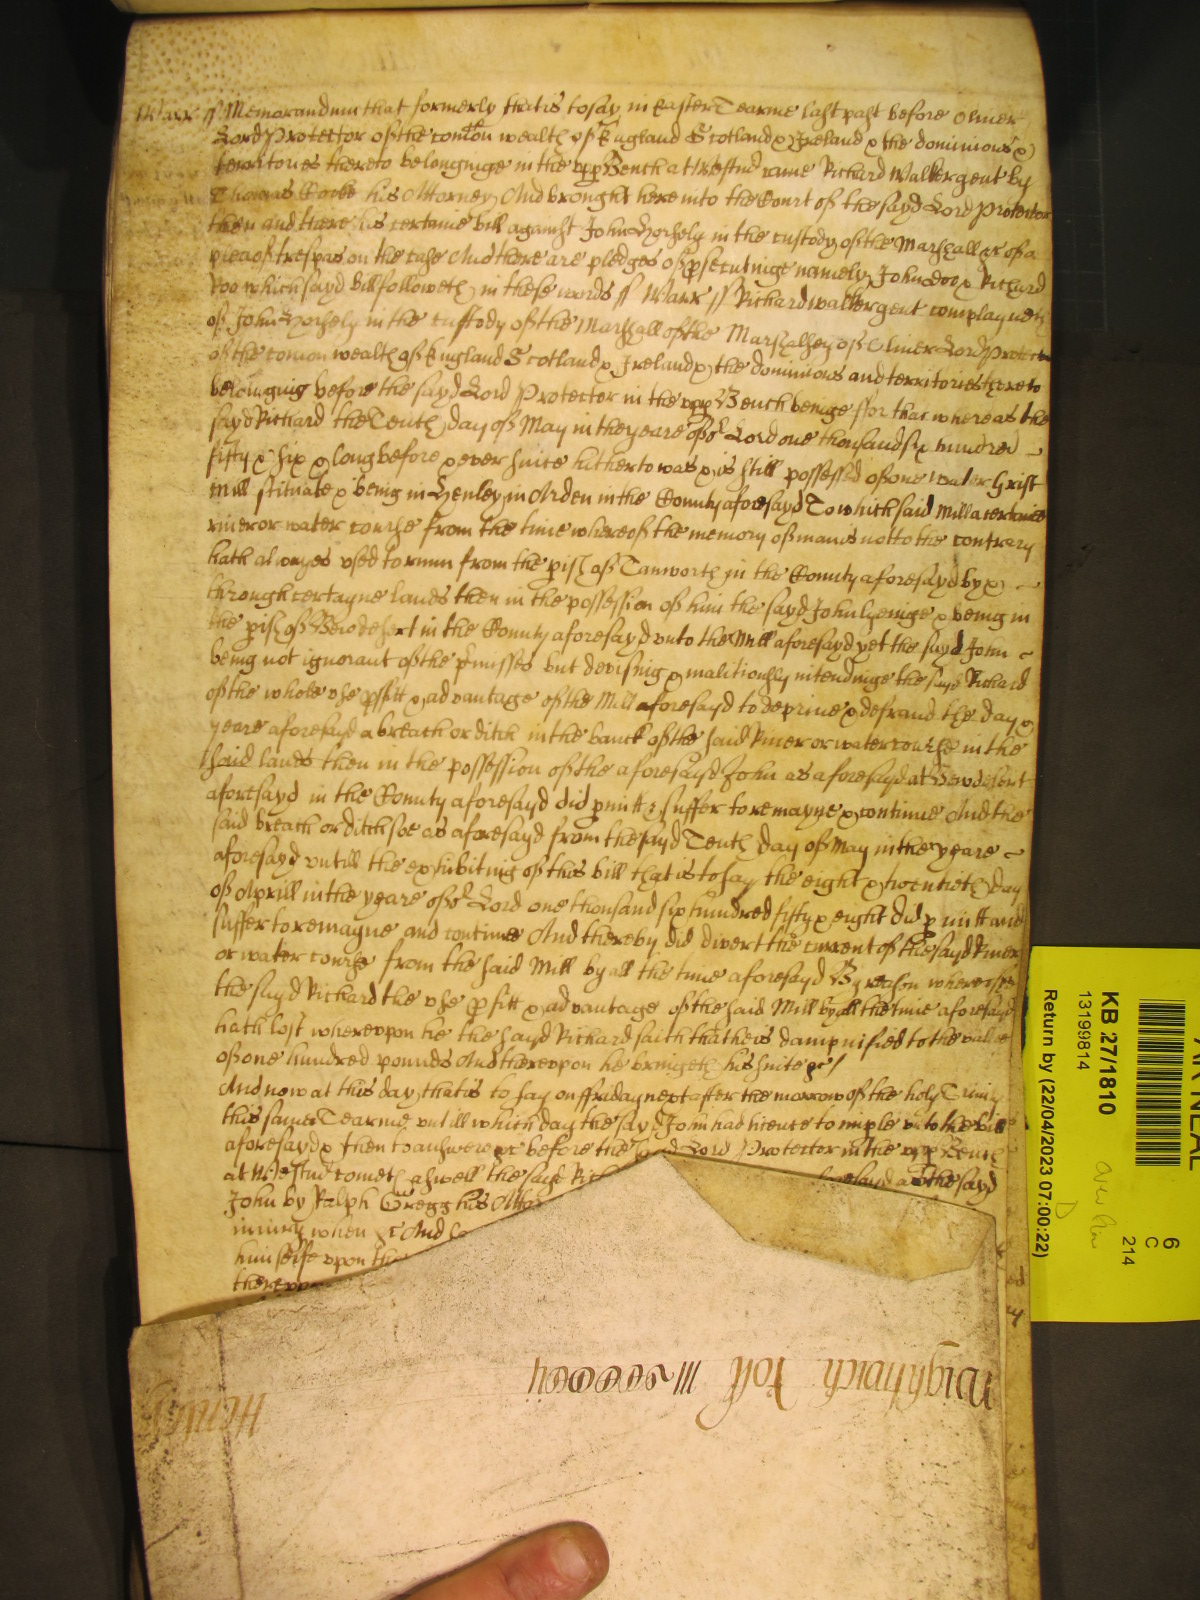 Warr ss Memorandum that formerly that is to say in Easter Tearme last past before Oliver
Lord Protector of the com̄on wealth of England Scotland & Ireland & the dominions &
territories thereto belonginge in the upp Bench at Westm̄ came Richard Walker gent by
Thomas Cooke his Attorney And brought here into the Court of the sayd Lord Protector
then and there his certaine bill against John in the custody of the Marshall &c of a
plea of trespas on the case And there are pledges of psecutinge namely John Doo & Richard
Roo which sayd Bill followeth in these words ss Warr ss Richard Walker gent complayneth
of John in the custody of the Marshall of the Marshalsey of Oliver Lord Protector
of the com̄on wealth of England Scotland & Ireland & the dominions and territories thereto
belonging before the sayd Lord Protector in the upp Bench beinge ffor that whereas the
sayd Richard the Tenth day of May in the yeare of or Lord one thousand six hundred
fifty & six & long before & ever since hitherto was & is still possessed of one water Grist
Mill scituate & being in Henley in Arden in the County aforesayd To which said Mill a certaine
river or water course from the time whereof the memory of man is not to the contrary
hath alwayes used to runn from the pish of Tanworth in the County aforesayd by &
through certayne lands then in the possession of him the sayd John lyenige & being in
the pish of Bewdesert in the County aforesayd unto the Mill aforesayd yet the sayd John
being not ignorant of the pmisses but devising & malitiously intendinge the sayd Richard
of the whole use pfitt & advantage of the Mill aforesayd to deprive & defraud the day &
yeare aforesayd a breach or ditch in the banck of the said River or water course in the
said lands then in the possession of the aforesayd John as aforesayd at Bewdesert
aforesayd in the County aforesayd did pmitt & suffer to remayne & continue And the
said breach or ditch soe as aforesayd from the sayd Tenth day of May in the yeare
aforesayd untill the exhibiting of this bill that is to say the eight & twentieth day
of Aprill in the yeare of or Lord one thousand six hundred fifty & eight did pmitt and
suffer to remayne and continue And thereby did divert the current of the sayd River
or water course from the said Mill by all the time aforesayd By reason whereof
the sayd Richard the use pfitt & advantage of the said Mill by all the time aforesayd
hath lost whereupon he the sayd Richard saith that he is dampnified to the value
of one hundred pounds And thereupon he bringeth his suite &c
And now at this day that is to say on ffriday next after the morrow of the holy Trinity
this same Tearme untill which day the sayd John had licence to imple unto the bill
aforesayd & then to answere &c before the Lord Protector in the upp Bench
at Westm̄ cometh aswell the sayd aforesayd as the sayd
John by Ralph Gregg his
iniury when &c And
himselfe upon the
thereupon
Wightwick
Henley
KB 27/1810
13199814
Return by (22/04/2023 07:00:22)
6
C
214